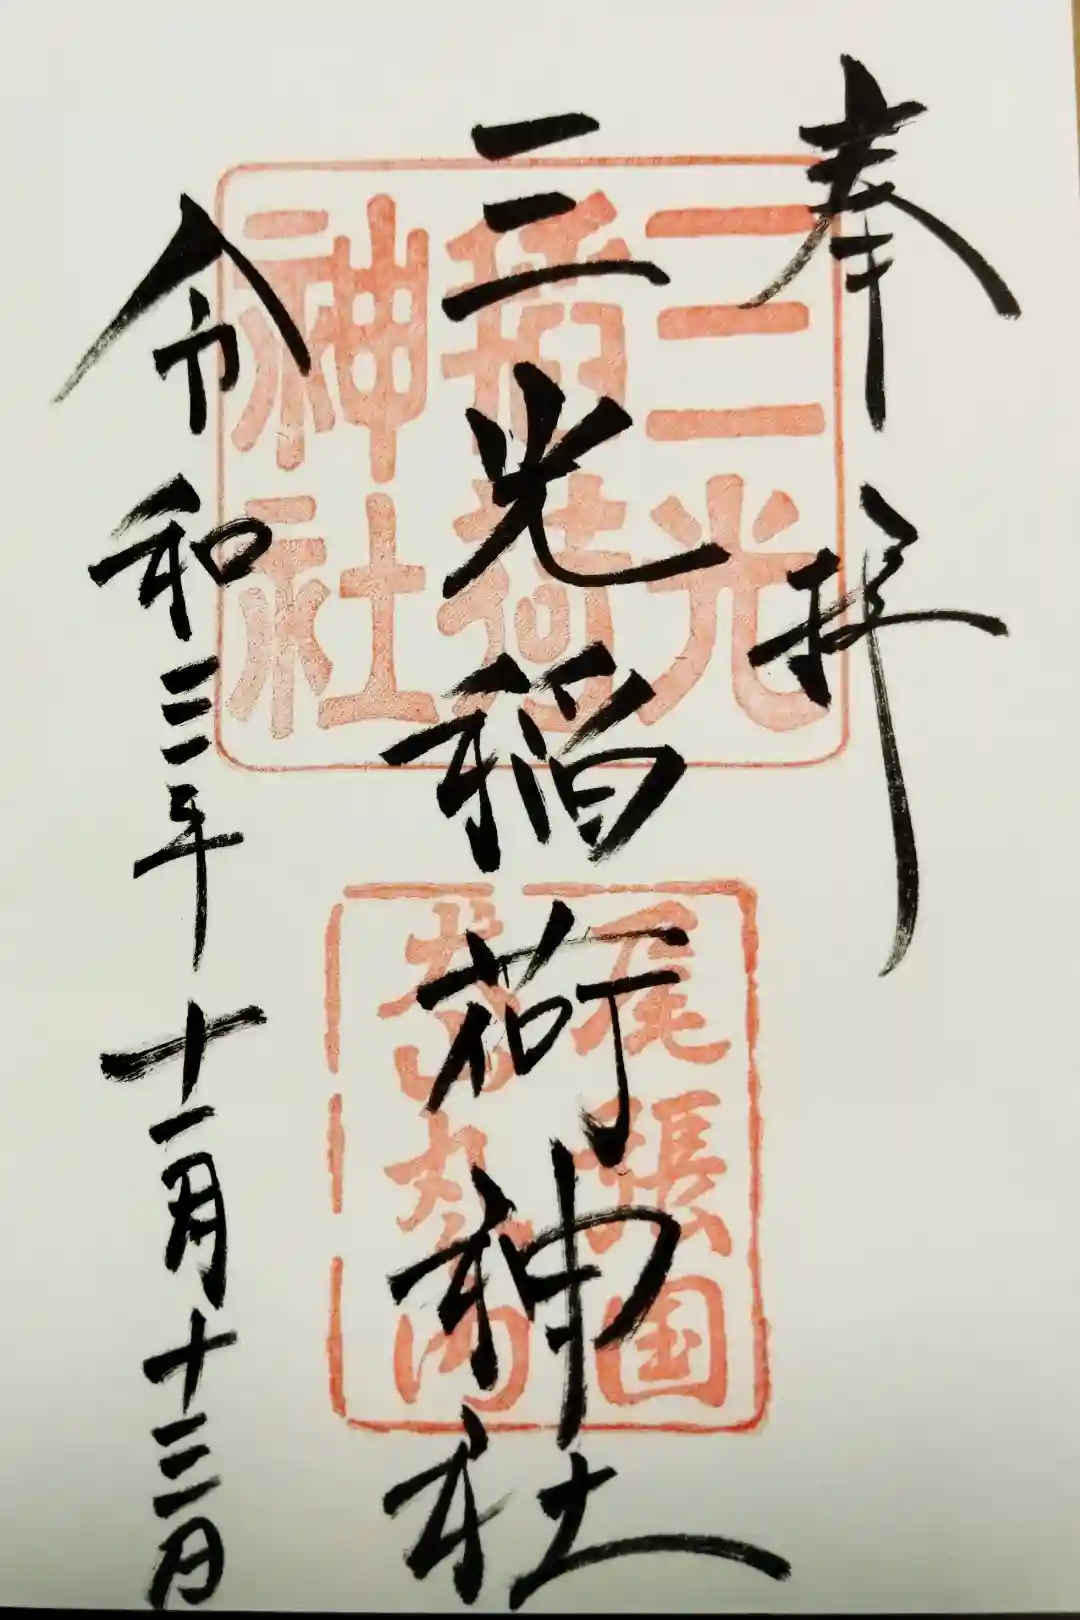 奉拝
三光稲荷神社
令和三年十一月十三日
三光
稲荷
神社
尾張国
犬山丸の内